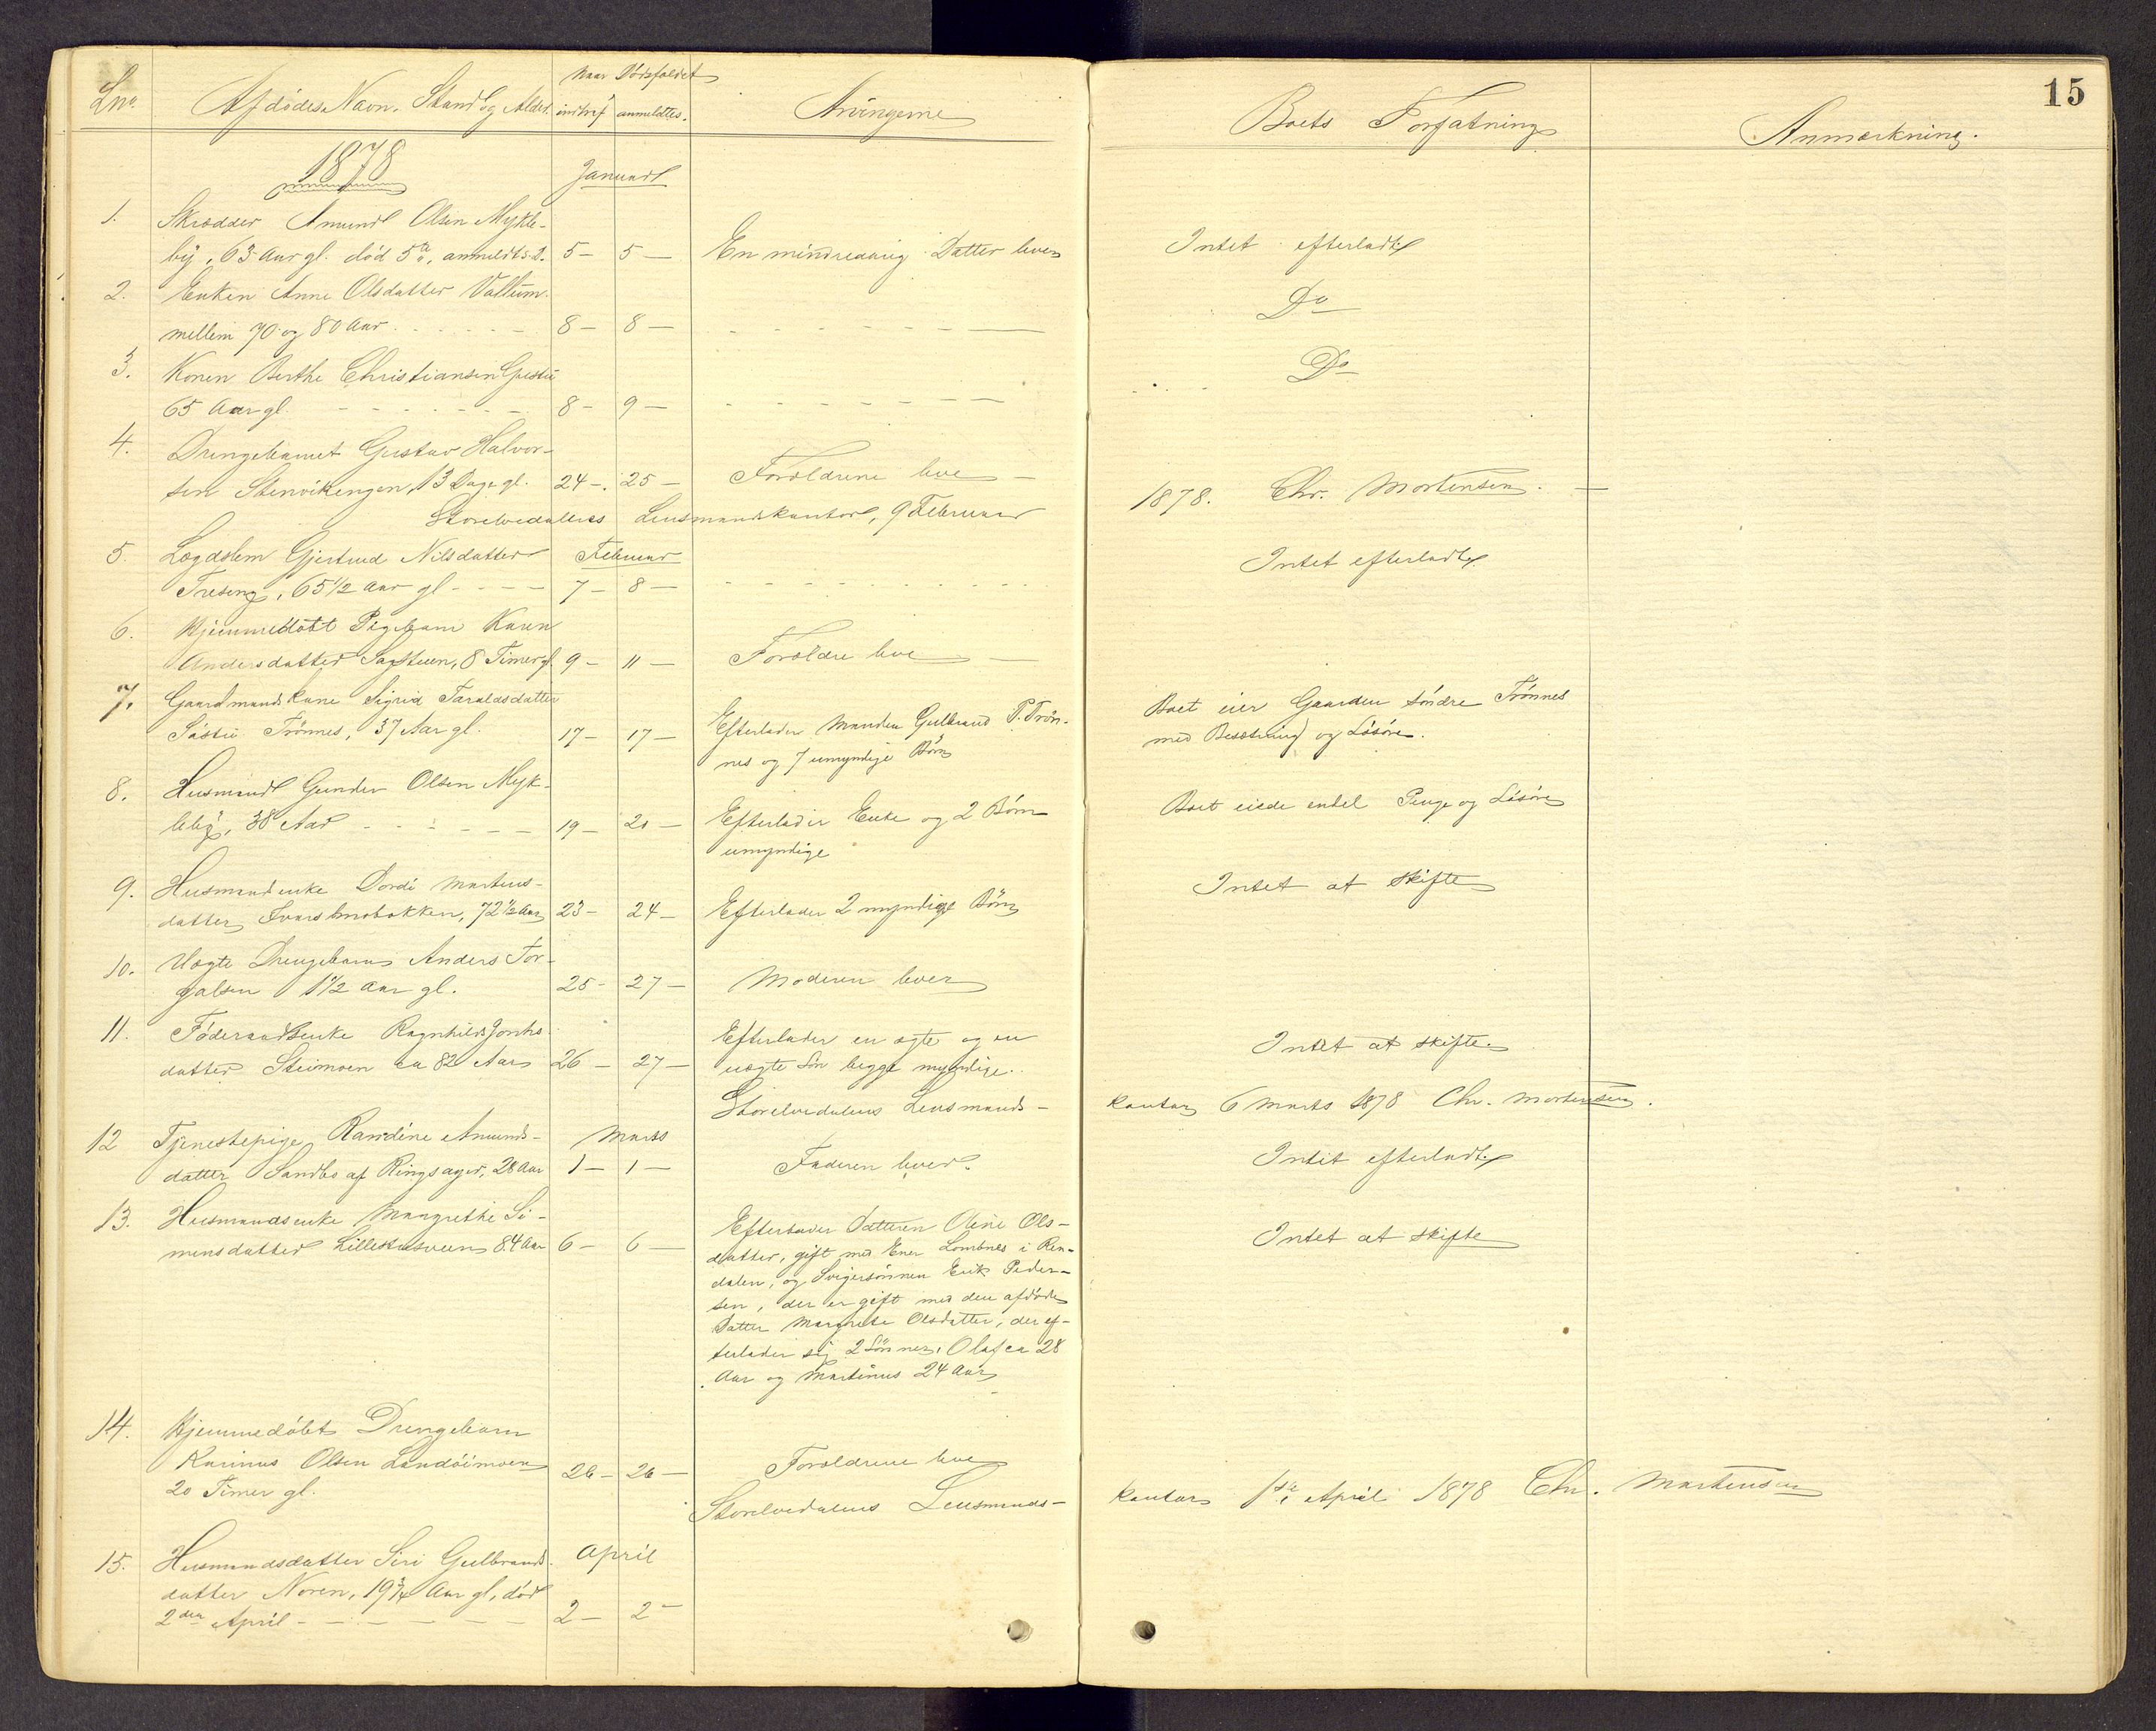 15
Lno. Afdødes Navn, Stand og Alder. Naar Dødsfaldet
indtraf anmeldtes. Arvingerne Boets Forfatning Anmærkning.
1878 Januar
1. Skrædder Amund Olsen Mykle-
by, 63 Aar gl. død 5te, anmeldt s.D. 5 - 5 - En mindreaarig Datter lever Intet efterladt
2. Enken Anne Olsdatter Vallum Do
mellem 70 og 80 Aar 8 - 8 -
3. Konen Berthe Christiansen Do
65 Aar gl. 8 - 9 -
4. Drengebarnet Gustav Halvor-
sen Stenvikengen, 13 Dage gl. 24 - 25 - Forældrene leve
Storelvedalens Lensmandskontor, 9 Februar 1878. Chr. Mortensen.
5. Lægdslem Gjertrud Nilsdatter Februar Intet efterladt
Treseng, 65 1/2 Aar gl 7 - 8 -
6. Hjemmedøbt Pigebarn Karen
Andersdatter Sagstuen, 8 Timer gl 9 - 11 - Forældre leve
7. Gaardmandskone Sigrid Taraldsdatter
Søstu Trønnes, 37 Aar gl. 17 - 17 - Efterlader Manden Gulbrand P. Trøn-
nes og 7 umyndige Børn
Boet eier Gaarden søndre Trønnes
med Besætning og Løsøre.
8. Husmand Gunder Olsen Myk-
leby, 38 Aar 19 - 20 - Efterlader Enke og 2 Børn
umyndige
Boet eiede endel Penge og Løsøre
9. Husmandsenke Dordi Martins- Intet at skifte
datter 72 1/2 Aar 23 - 24 - Efterlader 2 myndige Børn
10. Uægte Drengebarn Anders Tor-
galsen 1 1/2 Aar gl. 25 - 27 - Moderen lever
11. Føderaadsenke Ragnhild Jons-
datter Steimoen ca 82 Aar 26 - 27 - Efterlader en ægte og en
uægte Søn begge myndige.
Intet at skifte
Storelvedalens Lensmands-
kontor 6 Marts 1878 Chr. Mortensen.
12 Tjenestepige Randine Amunds- Marts
datter Sandbo af Ringsager, 28 Aar 1 - 1 - Faderen lever. Intet efterladt
13. Husmandsenke Margrethe Si-
mensdatter 84 Aar 6 - 6 - Efterlader Datteren Oline Ols-
datter, gift med Ener Lombnes i Ren-
dalen, og Svigersønnen Erik Peder-
sen, der er gift med den afdøde
Datter Margrete Olsdatter, der ef-
terlader sig 2 Sønner, Olaf ca 28
Aar og Martinus 24 Aar
Intet at skifte
14. Hjemmedøbt Drengebarn
Karinus Olsen Landsimoen
20 Timer gl. 26 - 26 - Forældrene leve
Storelvedalens Lensmands-
kontor 1ste April 1878 Chr. Mortensen
15. Husmandsdatter Siri Gulbrands- April
datter Noren, 19 3/4 Aar gl, død
2den April 2 - 2 -